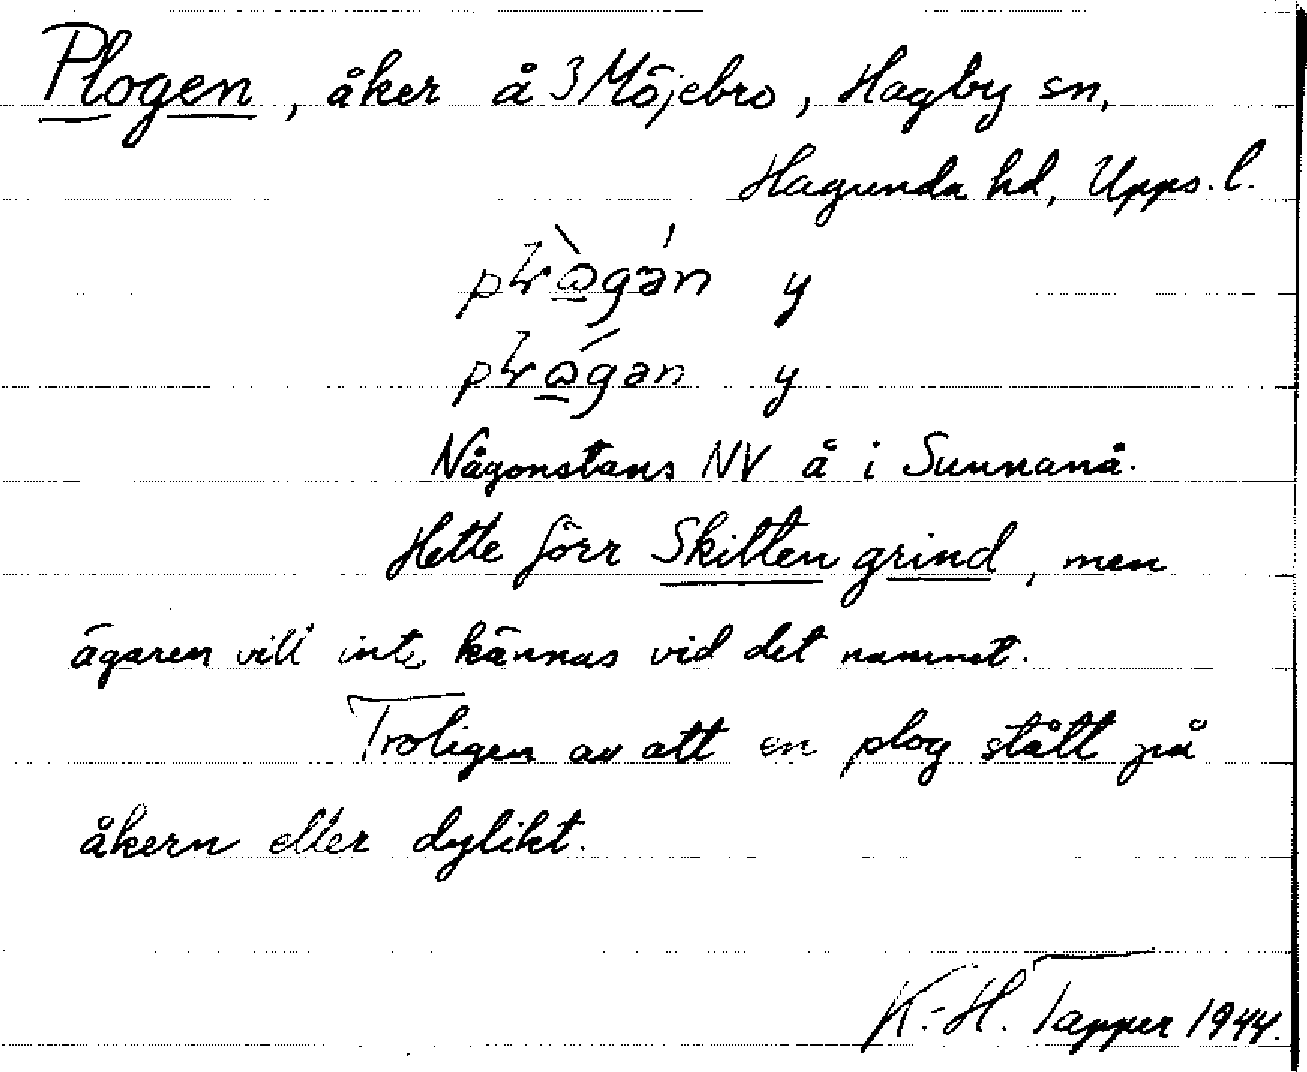 Plogen, åker å 3 Möjebro, Hagby sn,
Hagunda hd, Upps. l.
y
y
Någonstans NV å i Sunnanå.
Hette förr Skitten grind, men
ägaren vill inte kännas vid det namnet.
Troligen av att en plog stått på
åkern eller dylikt.
K.-H. Tapper 1944.